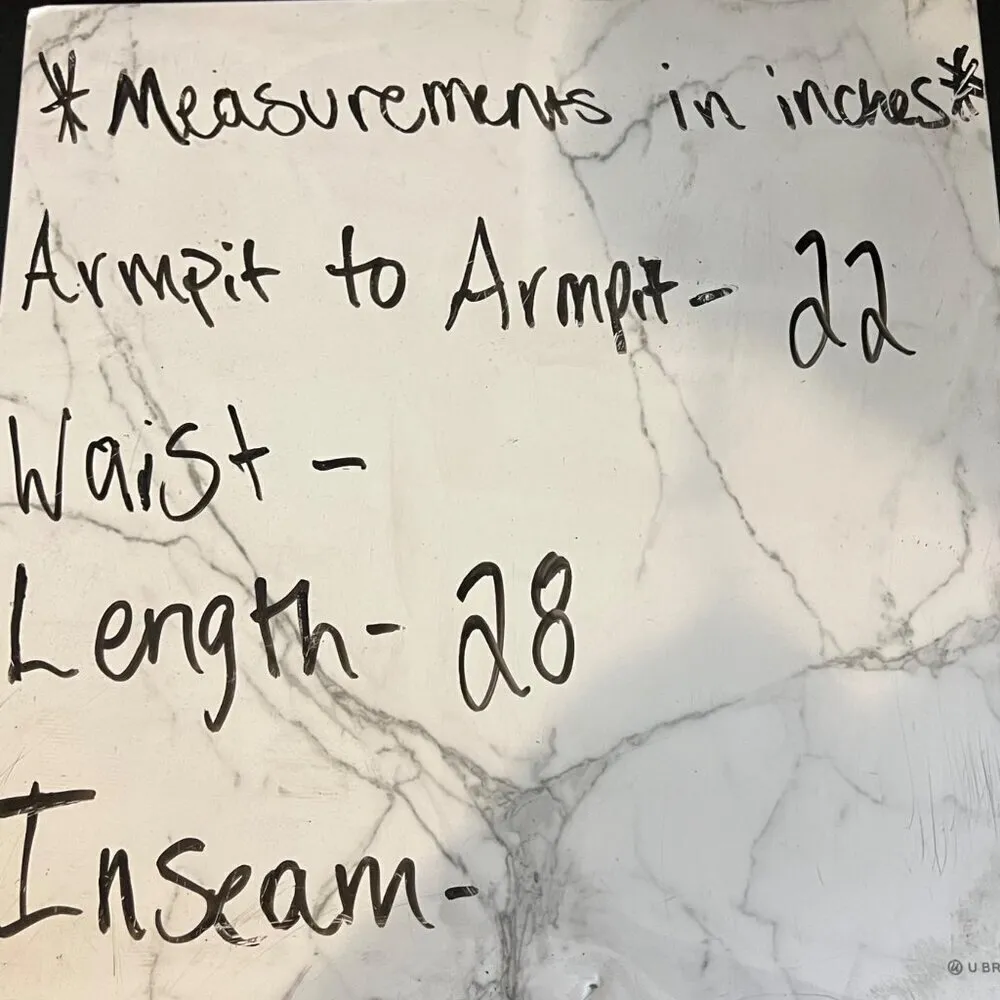 *Measurements in inches*
Armpit to Armpit- 22
Waist -
Length- 28
Inseam-
U BR